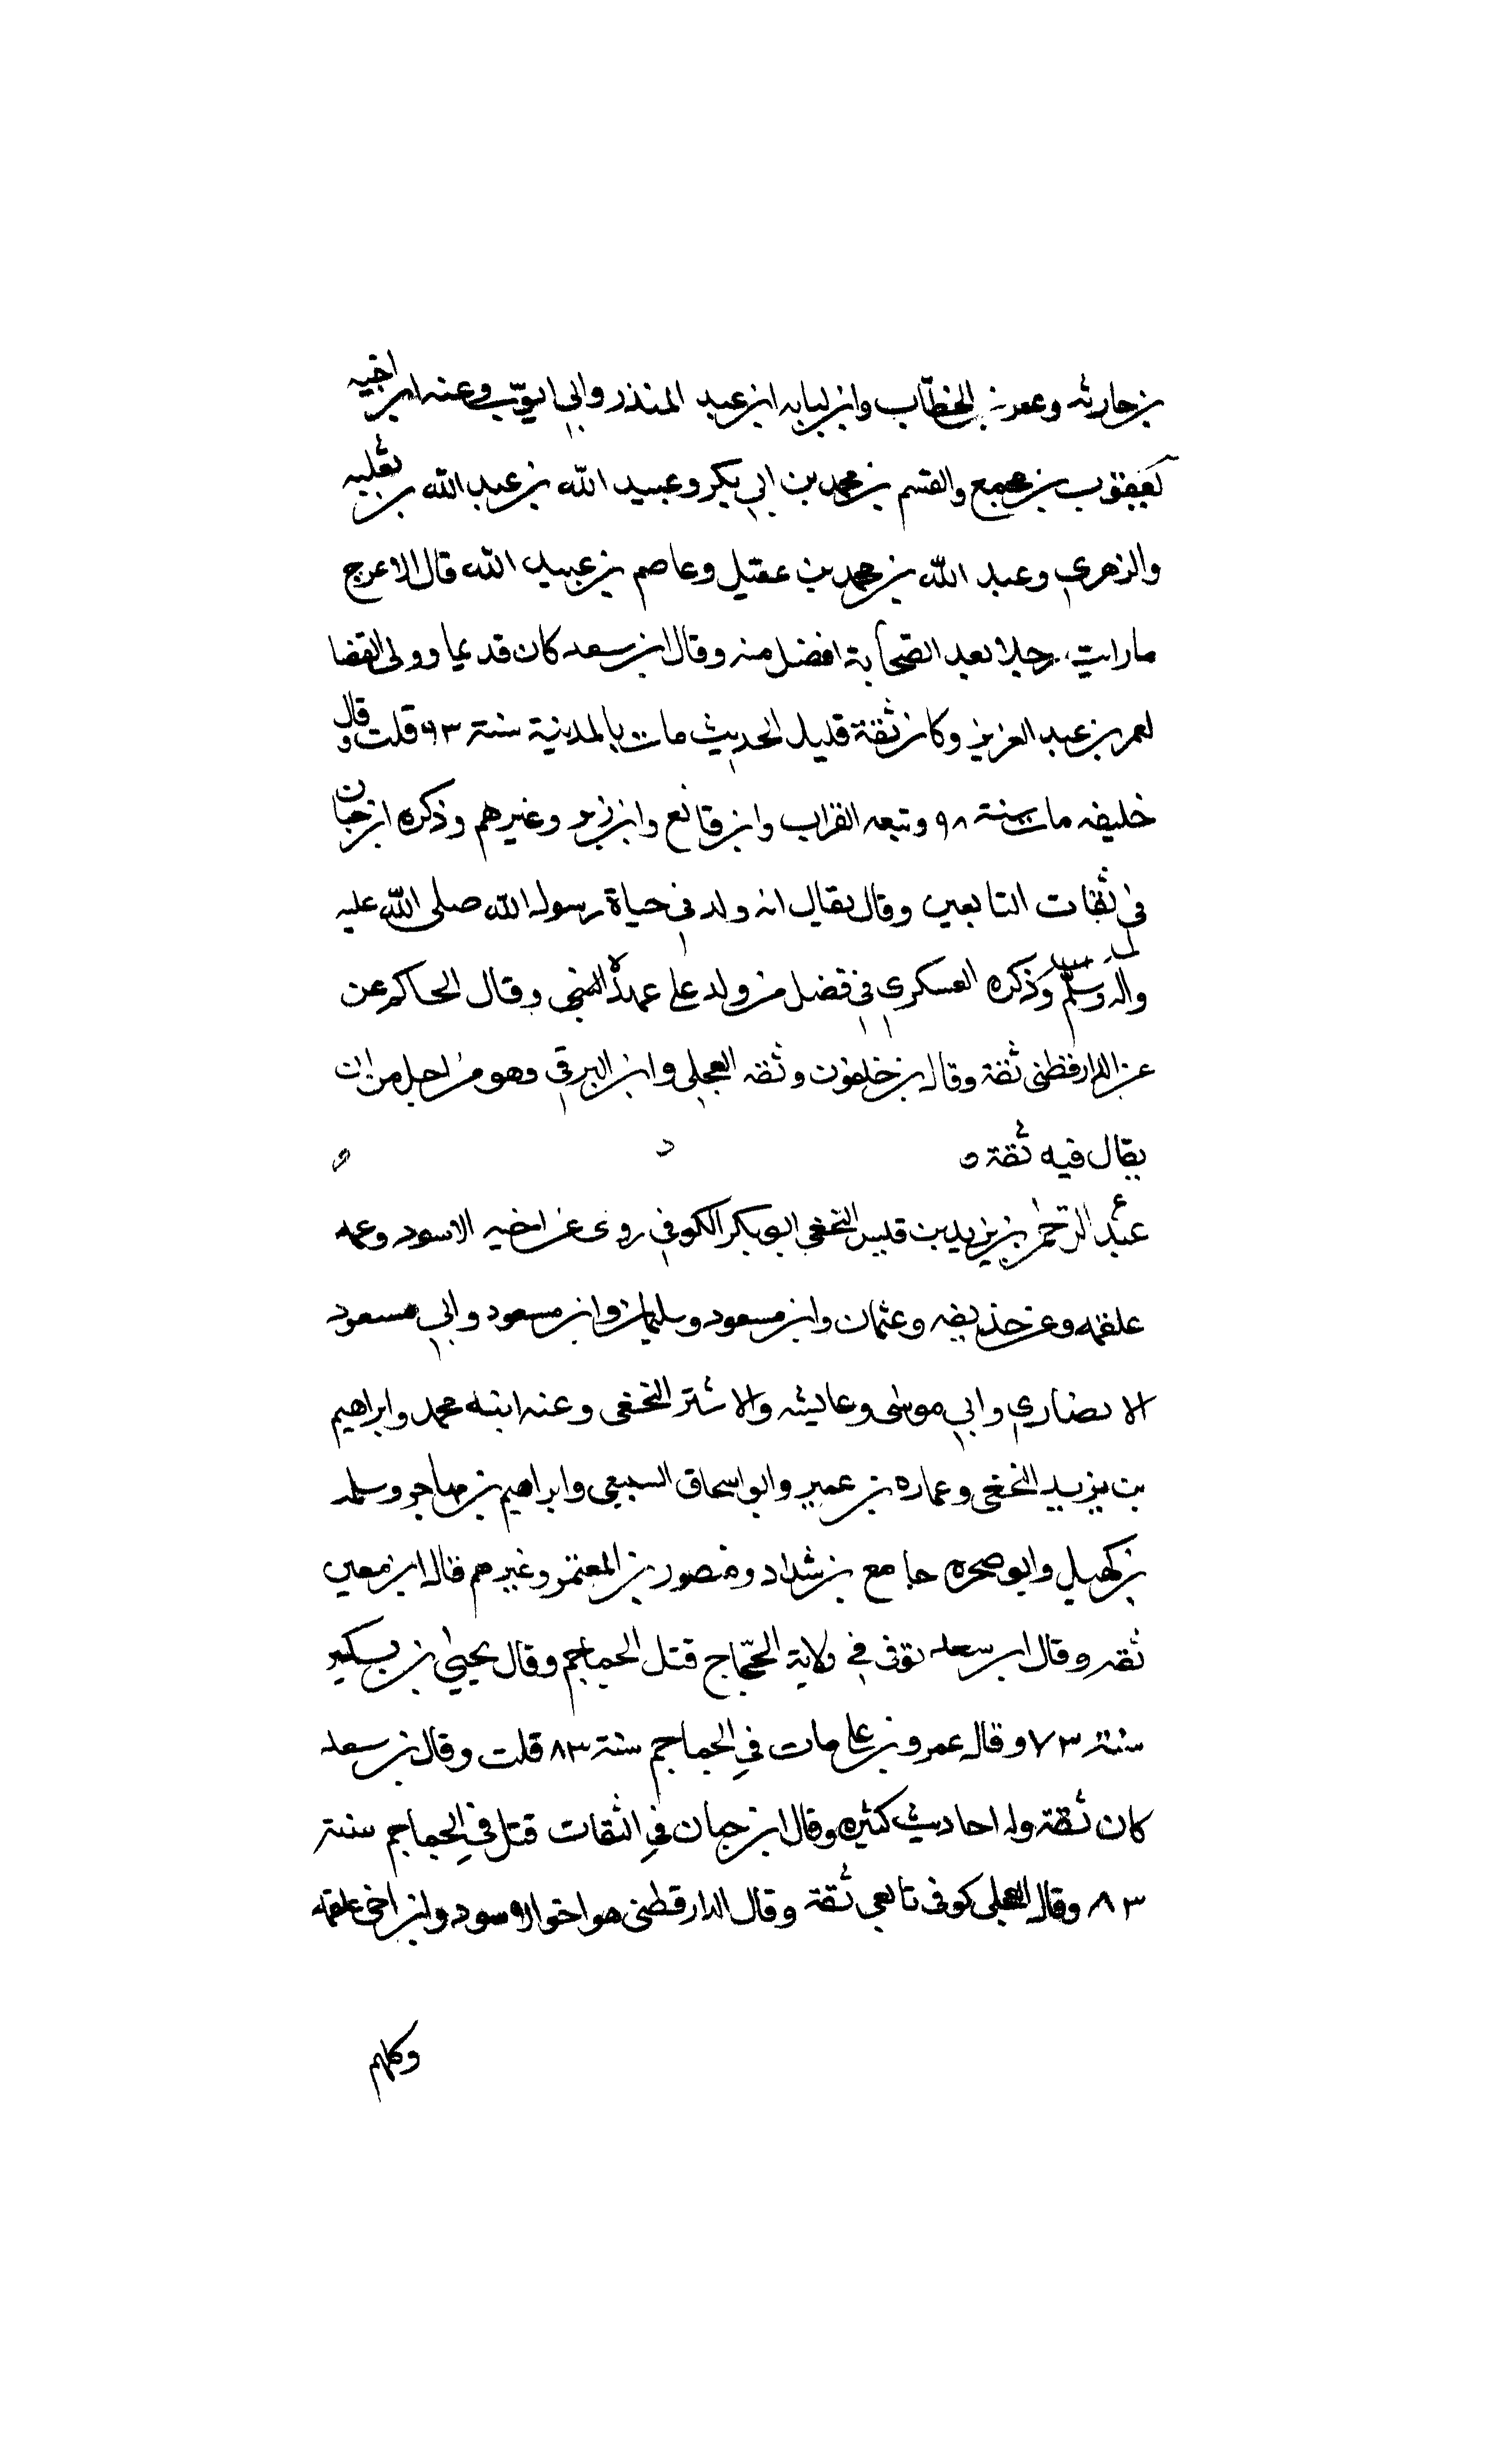 بن حارثه وعمر بن الخطاب وابن لبابه ابن عبد المنذر وابي ايوب وعنه ابن اخيه
يعقوب بن مجمع والقسم بن محمد بن ابي بكر وعبيد الله بن عبد الله بن ثعلبه
والزهري وعبد الله بن محمد بن عقيل وعاصم بن عبيد الله قال الاعرج
ما رايت رجلا بعد الصحابة افضل منه وقال ابن سعد كان قديما وولى القضا
لعمر بن عبد العزيز وكان ثقة قليل الحديث مات بالمدينة سنة ٩٣ قلت وقال
خليفه مات سنة ٩٨ وتبعه القراب وابن قانع وابن زبر وغيرهم وذكره ابن حبان
في ثقات التابعين وقال يقال انه ولد في حياة رسول الله صلى الله عليه
واله وسلم وذكره العسكري في فضل من ولد على عهد النبي وقال الحاكم عن
عن الدارقطني ثقة وقال بن خلفون وثقه العجلي وابن البرقي وهو من اجل من ان
يقال فيه ثقة ه
عبد الرحمن بن يزيد بن قيس النخعي ابو بكر الكوفي روى عن اخيه الاسود وعمه
علقمه وعن حذيفه وعثمان وابن مسعود وسليمان وابن مسعود وابي مسعود
الانصاري وابي موسى وعايشه والاشتر النخعي وعنه ابنه محمد وابراهيم
بن يزيد النخعي وعماره بن عمير وابو اسحاق السبيعي وابراهيم بن مهاجر وسلمه
بن كهيل وابو صخره جامع بن شداد ومنصور بن المعتمر وغيرهم قال ابن معين
ثقه وقال ابن سعد توفي في ولاية الحجاج قتل الجماجم وقال يحيى بن بكير
سنة ٧٣ وقال عمرو بن علي مات في الجماجم سنة ٨٣ قلت وقال بن سعد
كان ثقة وله احاديث كثيره وقال ابن حبان في الثقات قتل في الجماجم سنة
٨٣ وقال العجلي كوفي تابعي ثقة وقال الدارقطني هو اخو الاسود وابن اخي علقمه
وكلهم